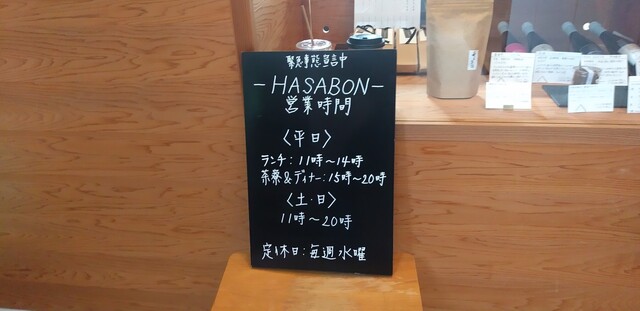 緊急事態宣言中
-HASABON-
営業時間
〈平日〉
ランチ:11時~14時
茶寮&ディナー:15時~20時
〈土・日〉
11時~20時
定休日:毎週水曜